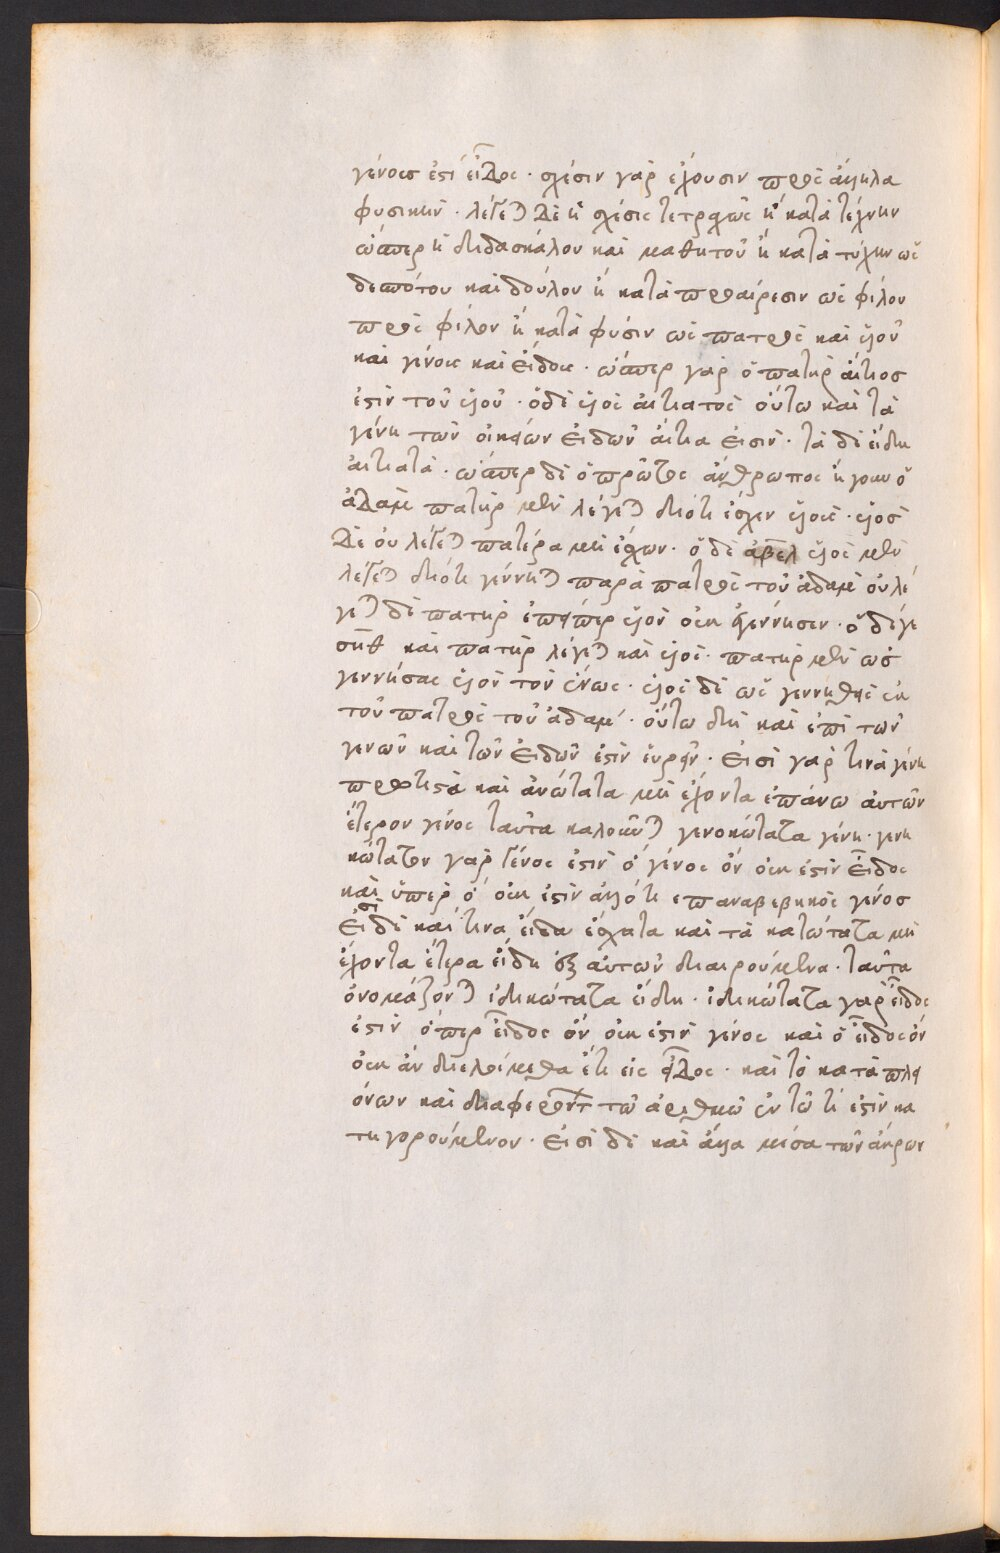 γένους ἐστὶ εἶδος · σχέσιν γὰρ ἔχουσιν πρὸς ἄλληλα
φυσικὴν · λέγεται δὲ ἡ σχέσις τετραχῶς ἢ κατὰ τέχνην
ὥσπερ ἡ διδασκάλου καὶ μαθητοῦ ἢ κατὰ τύχην ὡς
δεσπότου καὶ δούλου ἢ κατὰ προαίρεσιν ὡς φίλου
πρὸς φίλον ἢ κατὰ φύσιν ὡς πατρὸς καὶ υἱοῦ
καὶ γένους καὶ εἴδους · ὥσπερ γὰρ ὁ πατὴρ αἴτιος
ἐστὶν τοῦ υἱοῦ · ὁ δὲ υἱὸς αἰτιατὸς οὕτω καὶ τὰ
γένη τῶν οἰκείων εἰδῶν αἴτια εἰσὶν · τὰ δὲ εἴδη
αἰτιατὰ · ὥσπερ δὲ ὁ πρῶτος ἄνθρωπος ἤγουν ὁ
ἀδὰμ πατὴρ μὲν λέγεται διότι ἔσχεν υἱοὺς · υἱὸς
δὲ οὐ λέγεται πατέρα μὴ ἔχων · ὁ δὲ ἄβελ υἱὸς μὲν
λέγεται διότι γεννᾶται παρὰ πατρὸς τοῦ ἀδὰμ οὐ λέ
γεται δὲ πατὴρ ἐπείπερ υἱὸν οὐκ ἐγέννησεν · ὁ δέ γε
σὴθ καὶ πατὴρ λέγεται καὶ υἱὸς · πατὴρ μὲν ὡς
γεννήσας υἱὸν τὸν ἐνώς · υἱὸς δὲ ὡς γεννηθεὶς ἐκ
τοῦ πατρὸς τοῦ ἀδάμ · οὕτω δὴ καὶ ἐπὶ τῶν
γενῶν καὶ τῶν εἰδῶν ἐστὶν εὑρεῖν · εἰσὶ γὰρ τινὰ γένη
πρώτιστα καὶ ἀνώτατα μὴ ἔχοντα ἐπάνω αὐτῶν
ἕτερον γένος ταῦτα καλοῦνται γενικώτατα γένη · γενι
κώτατον γὰρ γένος ἐστὶν ὁ γένος ὂν οὐκ ἐστὶν εἶδος
καὶ ὑπὲρ ὃ οὐκ ἐστὶν ἄλλό τι ἐπαναβεβηκὸς γένος
εἰσὶ δὲ καί τινα εἴδη ἔσχατα καὶ τὰ κατώτατα μὴ
ἔχοντα ἕτερα εἴδη ἐξ αὐτῶν διαιρούμενα · ταῦτα
ὀνομάζονται ἰδικώτατα εἴδη · ἰδικώτατα γὰρ εἶδος
ἐστὶν ὅπερ εἶδος ὂν οὐκ ἐστὶν γένος καὶ ὃ εἶδος ὂν
οὐκ ἂν διελοίμεθα ἔτι εἰς εἶδος · καὶ τὸ κατὰ πλει
όνων καὶ διαφερόντων τῷ ἀριθμῷ ἐν τῷ τί ἐστὶν κα
τηγορούμενον · εἰσὶ δὲ καὶ ἄλλα μέσα τῶν ἄκρων